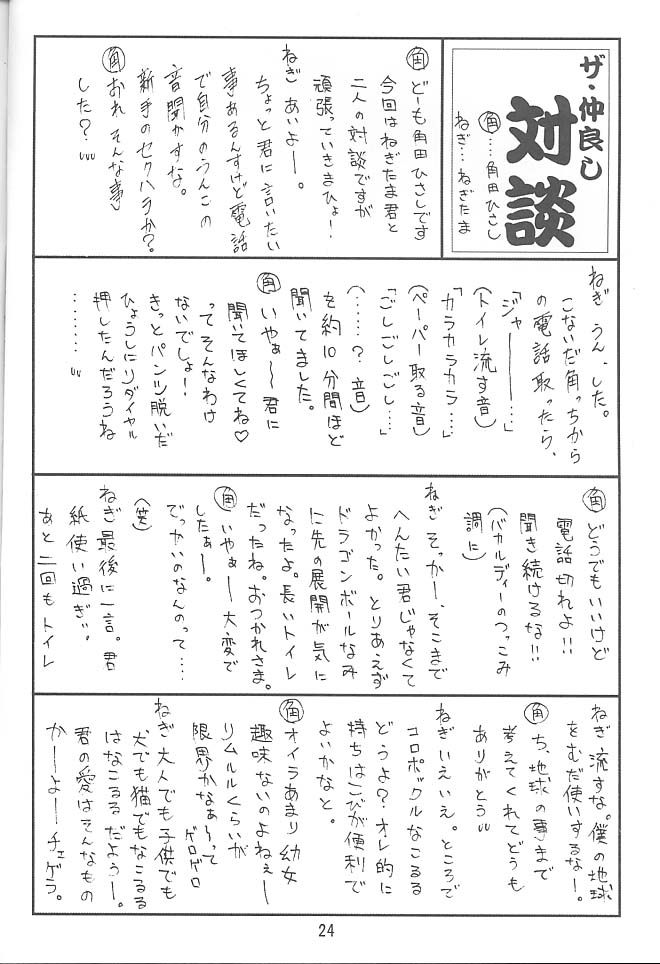 ザ・仲良し
対談
角……角田ひさし
ねぎ…ねぎたま
角 どーも角田ひさしです
今回はねぎたま君と
二人の対談ですが
頑張っていきまひょ!
ねぎ あいよー。
ちょっと君に言いたい
事あるんすけど電話
で自分のうんこの
音聞かすな。
新手のセクハラか?
角 おれ そんな事
した?
ねぎ うん、した。
こないだ角っちから
の電話取ったら、
「ジャーーー…」
(トイレ流す音)
「カラカラカラ…」
(ペーパー取る音)
「ごしごしごし…」
(……?音)
を約10分間ほど
聞いてました。
角 いやぁ〜君に
聞いてほしくてね♡
ってそんなわけ
ないでしょ!
きっとパンツ脱いだ
ひょうしにリダイヤル
押したんだろうね
………
角 どうでもいいけど
電話切れよ!!
聞き続けるな!!
(バカルディーのつっこみ
調に)
ねぎ そっかー、そこまで
へんたい君じゃなくて
よかった。とりあえず
ドラゴンボールなみ
に先の展開が気に
なったよ。長いトイレ
だったね。おつかれさま。
角 いやぁー大変で
したぁー。
でっかいのなんのって…
(笑)
ねぎ 最後に一言。君
紙使い過ぎ。
あと二回もトイレ
ねぎ 流すな。僕の地球
をむだ使いするなー。
角 ち、地球の事まで
考えてくれてどうも
ありがとう
ねぎ いえいえ。ところで
コロポックルなこるる
どうよ?オレ的に
持ちはこびが便利で
よいかなと。
角 オイラあまり幼女
趣味ないのよねぇー
リムルルくらいが
限界かなぁ〜って
ゲロゲロ
ねぎ 大人でも子供でも
犬でも猫でもなこるる
はなこるるだよぅー。
君の愛はそんなもの
かーよーチェゲラ。
24